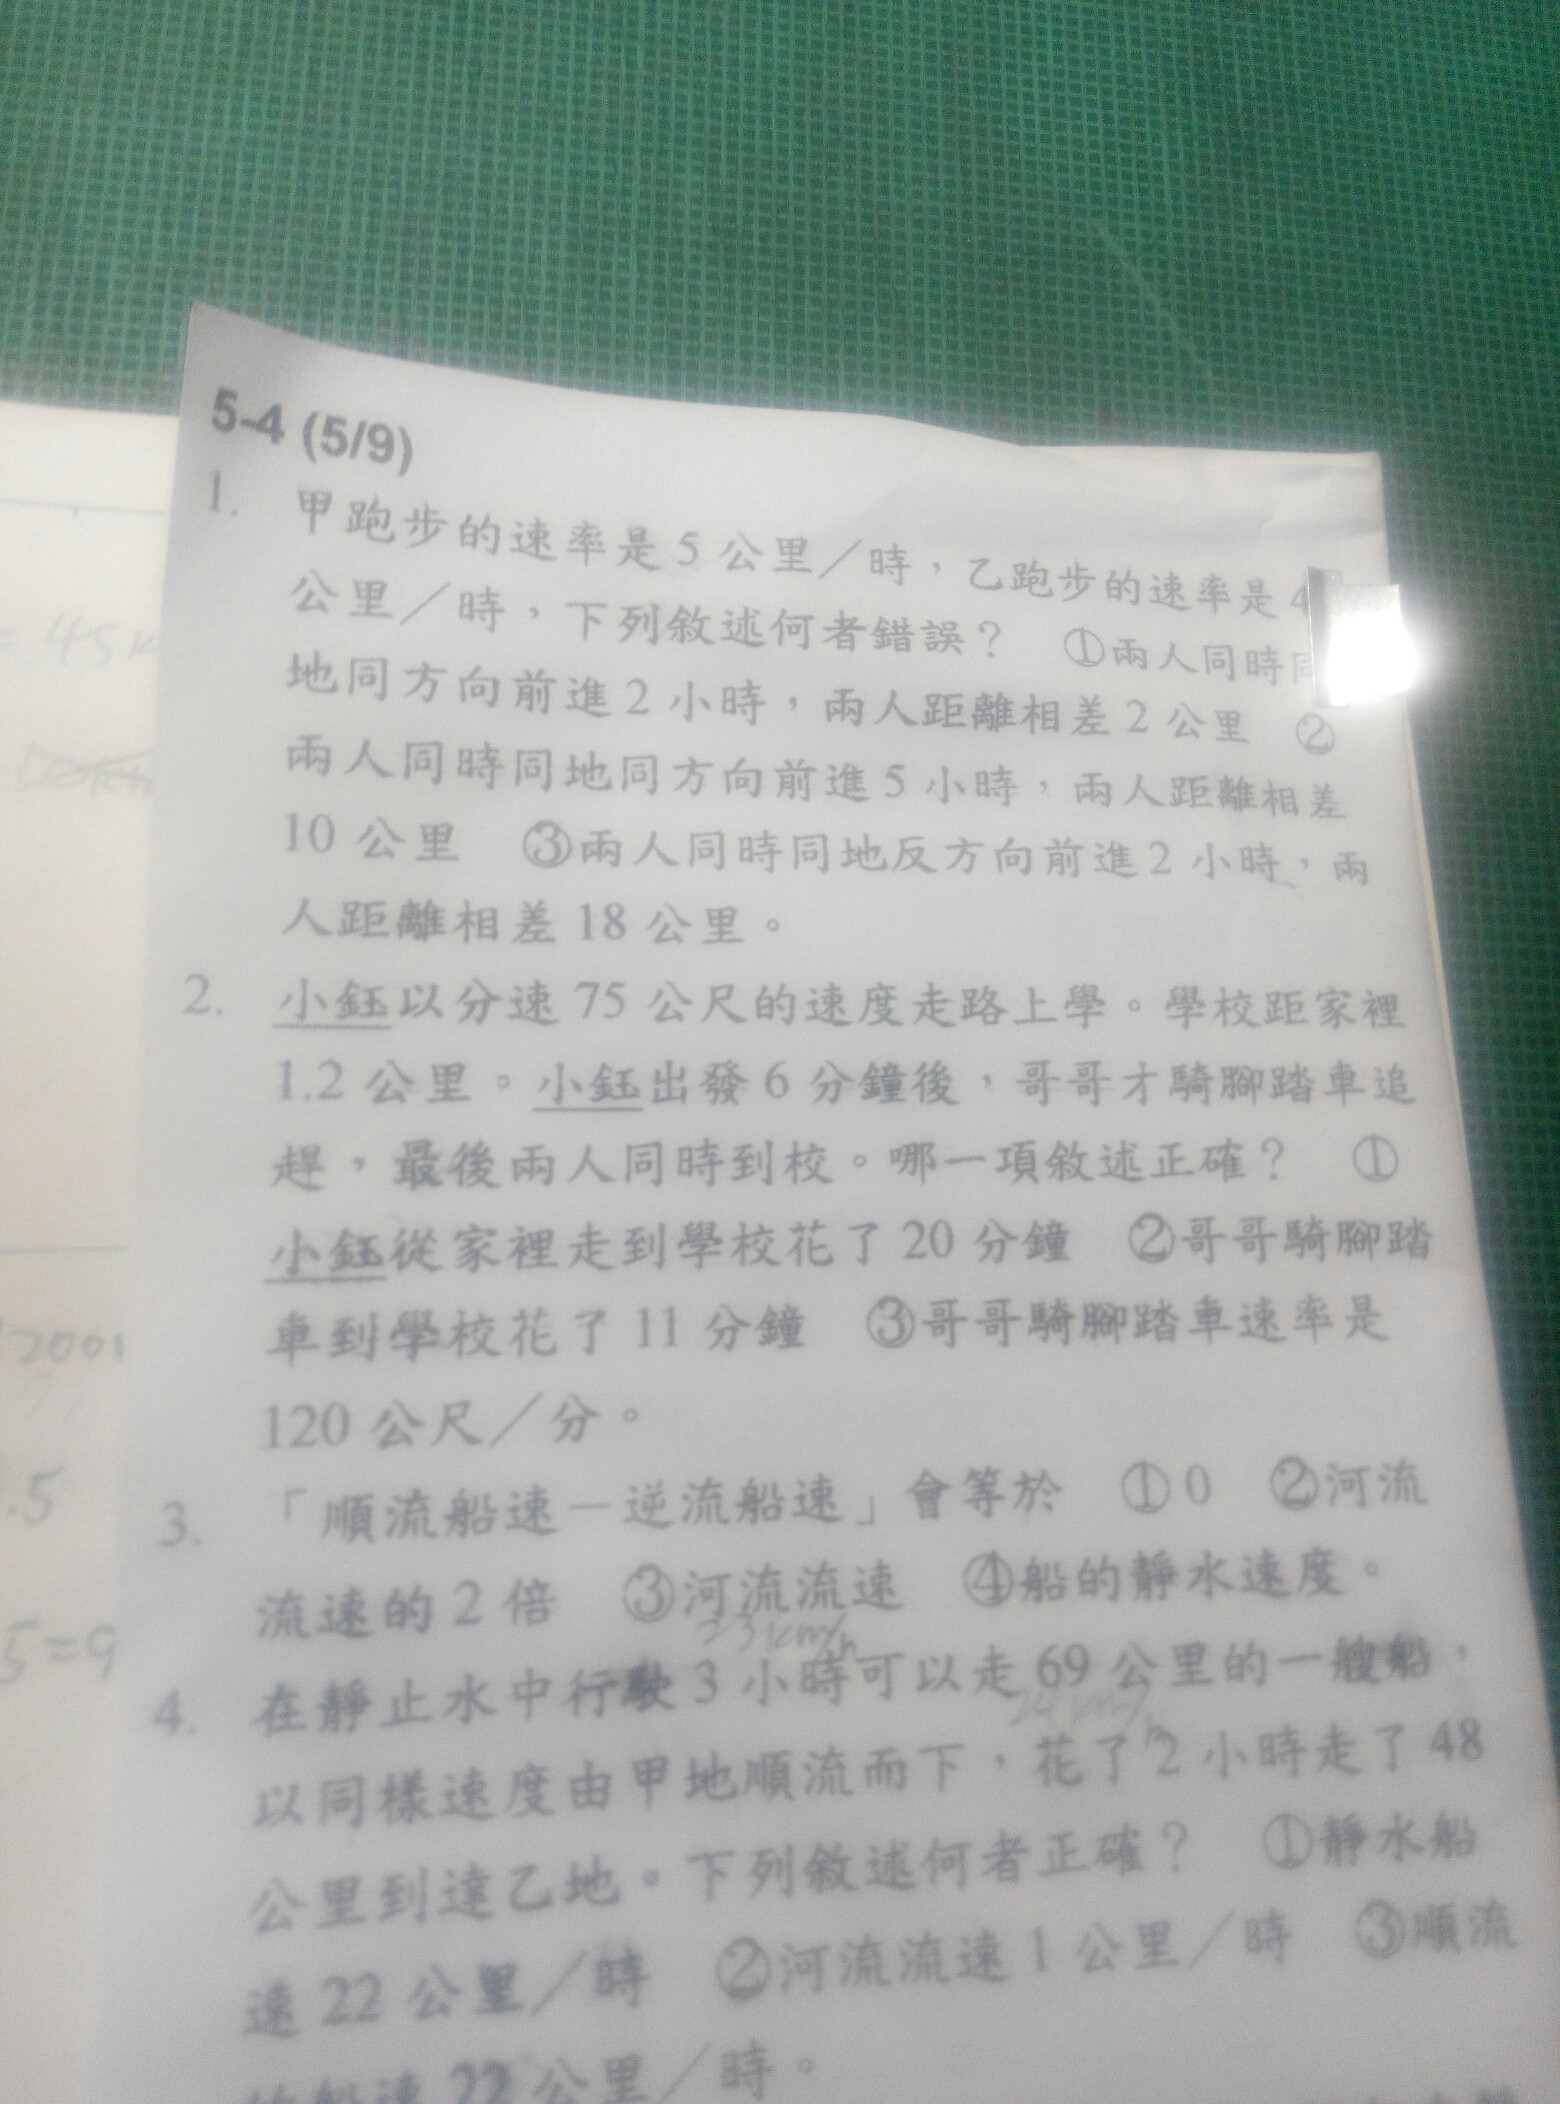 5-4 (5/9)
1. 甲跑步的速率是 5 公里／時，乙跑步的速率是 4
公里／時，下列敘述何者錯誤？ ①兩人同時同
地同方向前進 2 小時，兩人距離相差 2 公里 ②
兩人同時同地同方向前進 5 小時，兩人距離相差
10 公里 ③兩人同時同地反方向前進 2 小時，兩
人距離相差 18 公里。
2. 小鈺以分速 75 公尺的速度走路上學。學校距家裡
1.2 公里。小鈺出發 6 分鐘後，哥哥才騎腳踏車追
趕，最後兩人同時到校。哪一項敘述正確？ ①
小鈺從家裡走到學校花了 20 分鐘 ②哥哥騎腳踏
車到學校花了 11 分鐘 ③哥哥騎腳踏車速率是
120 公尺／分。
3. 「順流船速－逆流船速」會等於 ①0 ②河流
流速的 2 倍 ③河流流速 ④船的靜水速度。
23 km/h
4. 在靜止水中行駛 3 小時可以走 69 公里的一艘船，
24 km/h
以同樣速度由甲地順流而下，花了 2 小時走了 48
公里到達乙地。下列敘述何者正確？ ①靜水船
速 22 公里／時 ②河流流速 1 公里／時 ③順流
的船速 22 公里／時。
= 45 k
2001
.5
5=9